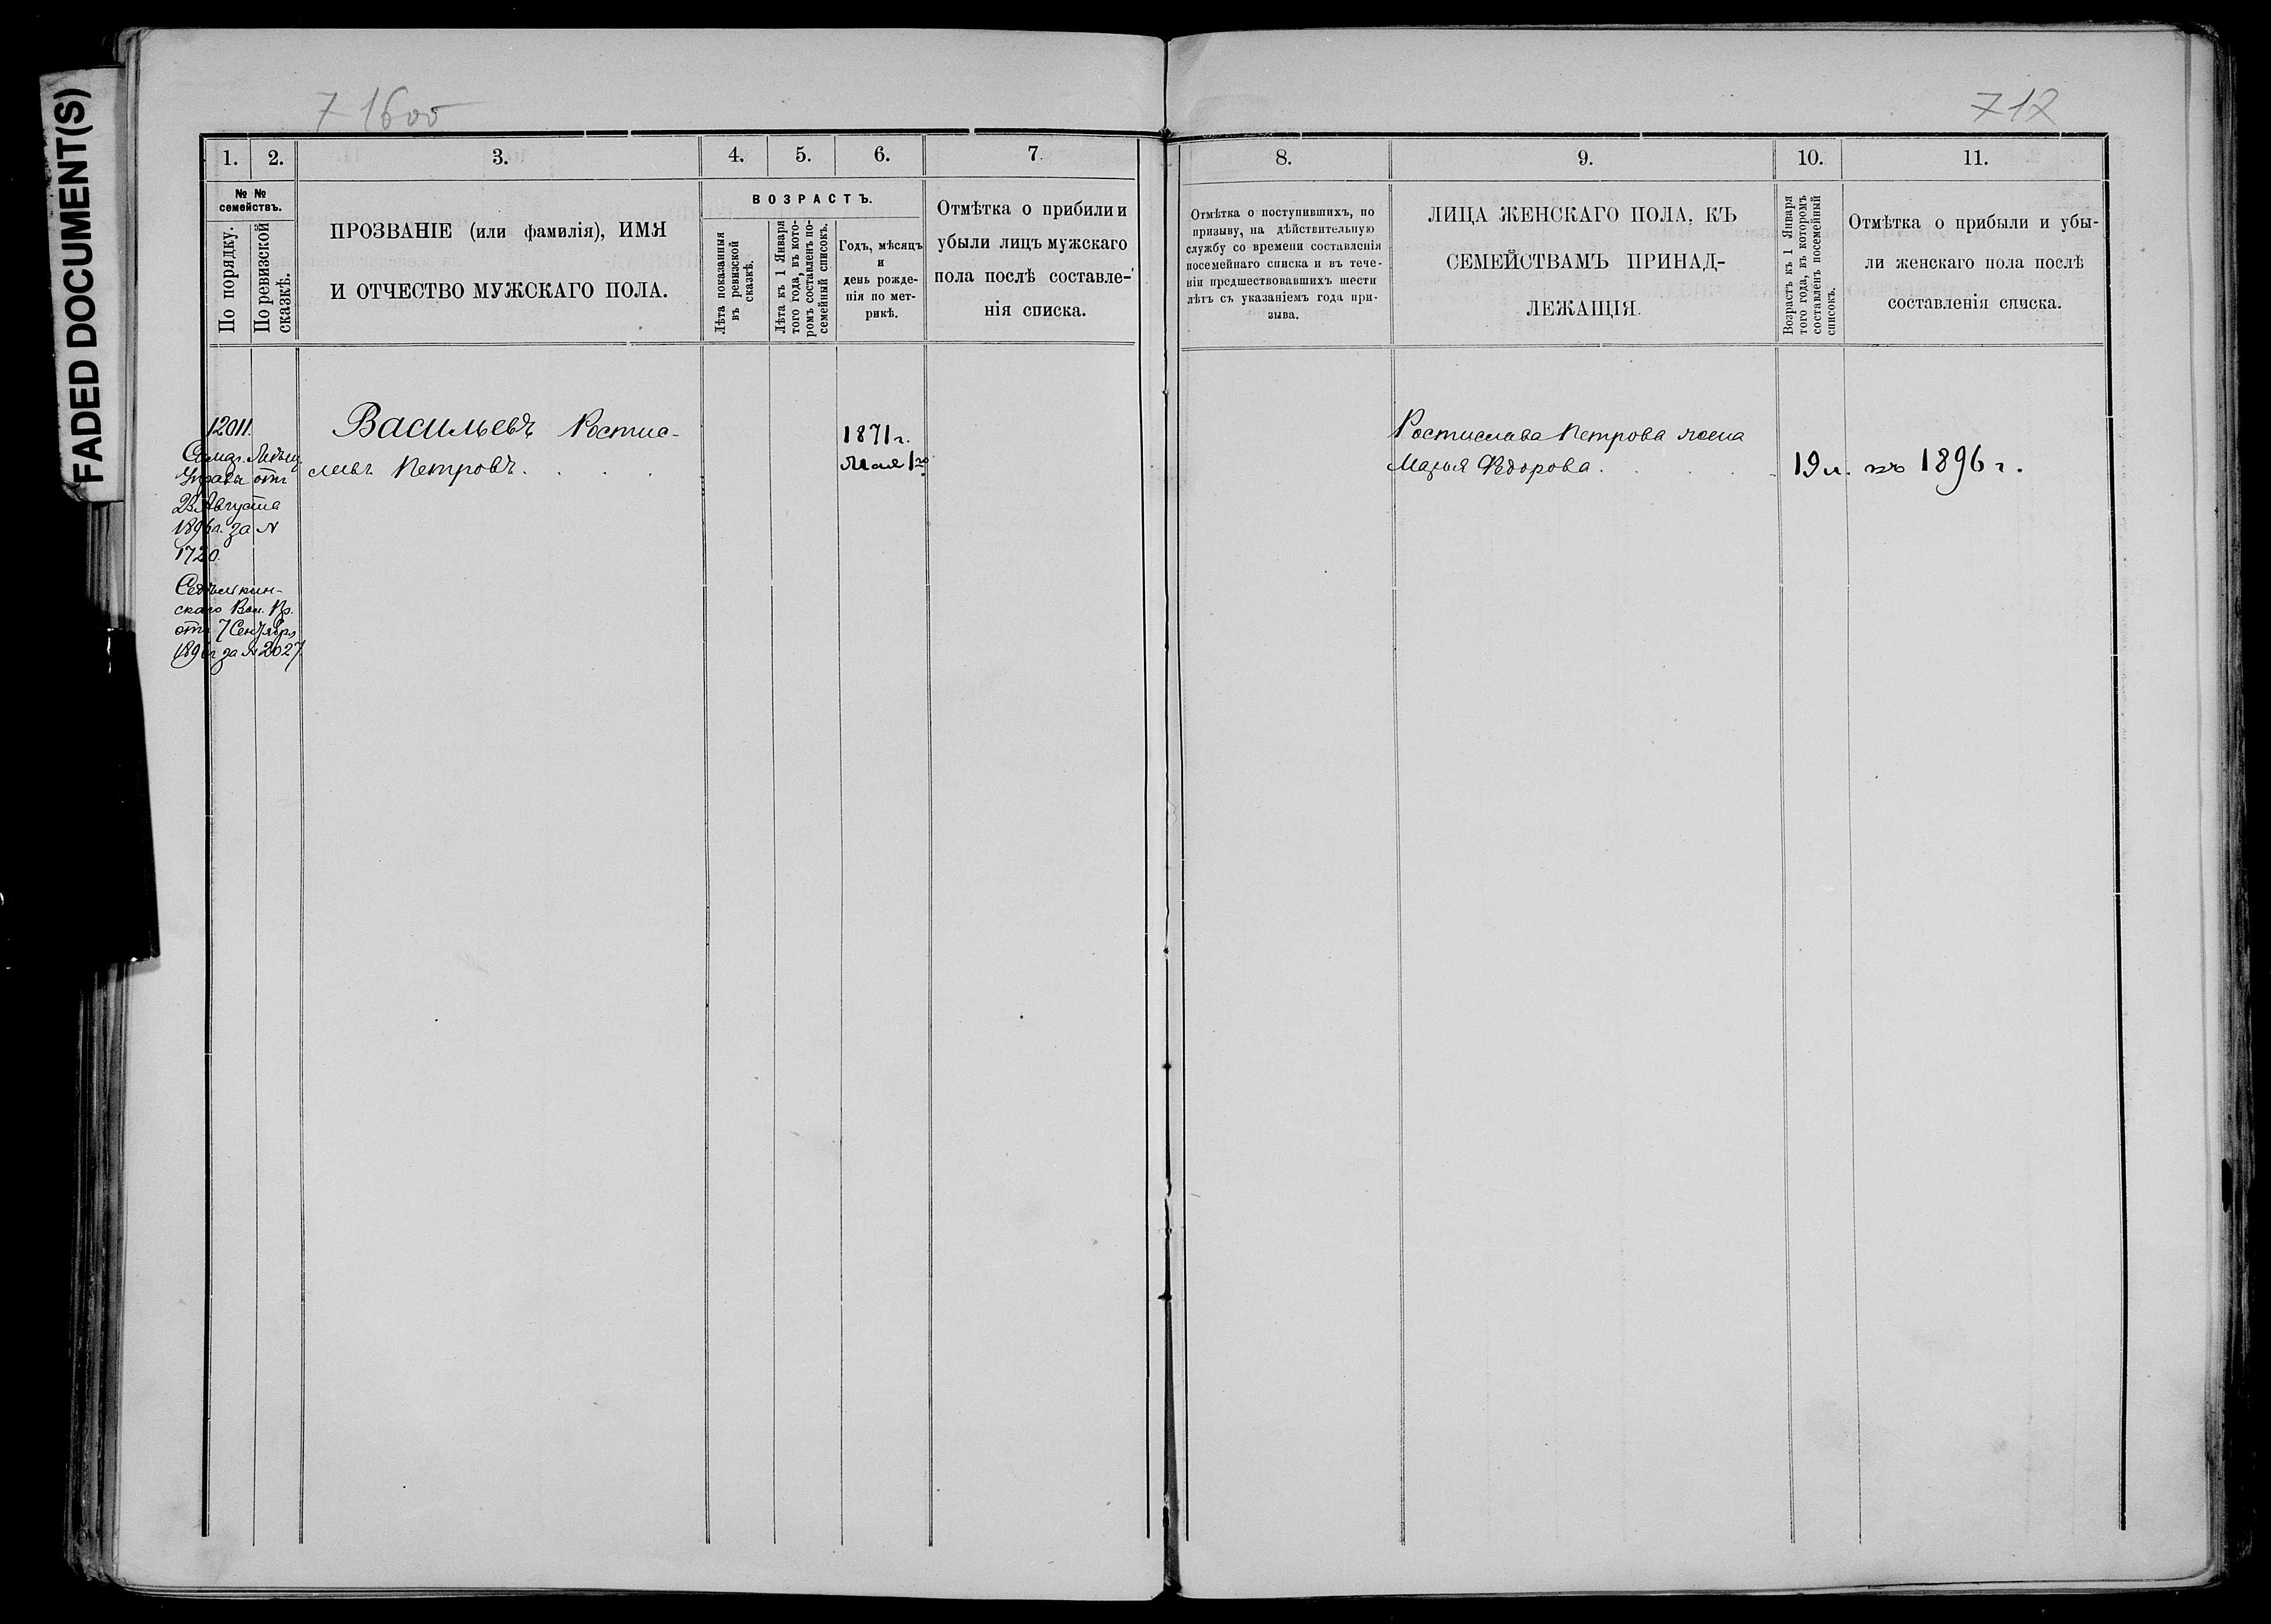 FADED DOCUMENT(S)
7 1600
712
1.
2.
3.
4.
5.
6.
7.
№ №
семействъ.
По порядку.
По ревизской
сказкѣ.
ПРОЗВАНІЕ (или фамилія), ИМЯ
И ОТЧЕСТВО МУЖСКАГО ПОЛА.
ВОЗРАСТЪ.
Лѣта показанныя
въ ревизской
сказкѣ.
Лѣта къ 1 Января
того года, въ кото-
ромъ составленъ по-
семейный списокъ.
Годъ, мѣсяцъ
и
день рожде-
нія по мет-
рикѣ.
Отмѣтка о прибыли и
убыли лицъ мужскаго
пола послѣ составле-
нія списка.
8.
9.
10.
11.
Отмѣтка о поступившихъ, по
призыву, на дѣйствительную
службу со времени составленія
посемейнаго списка и въ тече-
ніи предшествовавшихъ шести
лѣтъ съ указаніемъ года при-
зыва.
ЛИЦА ЖЕНСКАГО ПОЛА, КЪ
СЕМЕЙСТВАМЪ ПРИНАД-
ЛЕЖАЩІЯ.
Возрастъ къ 1 Января
того года, въ которомъ
составленъ посемейный
списокъ.
Отмѣтка о прибыли и убы-
ли женскаго пола послѣ
составленія списка.
12011.
Васильевъ Ростис-
лавъ Петровъ.
1871 г.
Мая 1го
Ростислава Петрова жена
Марья Ѳедорова.
19 л. въ 1896 г.
Управы отъ
23 Августа
1896 г. за №
1720.
скаго Вол. Пр.
отъ 7 Сентября
1896 г за № 2027